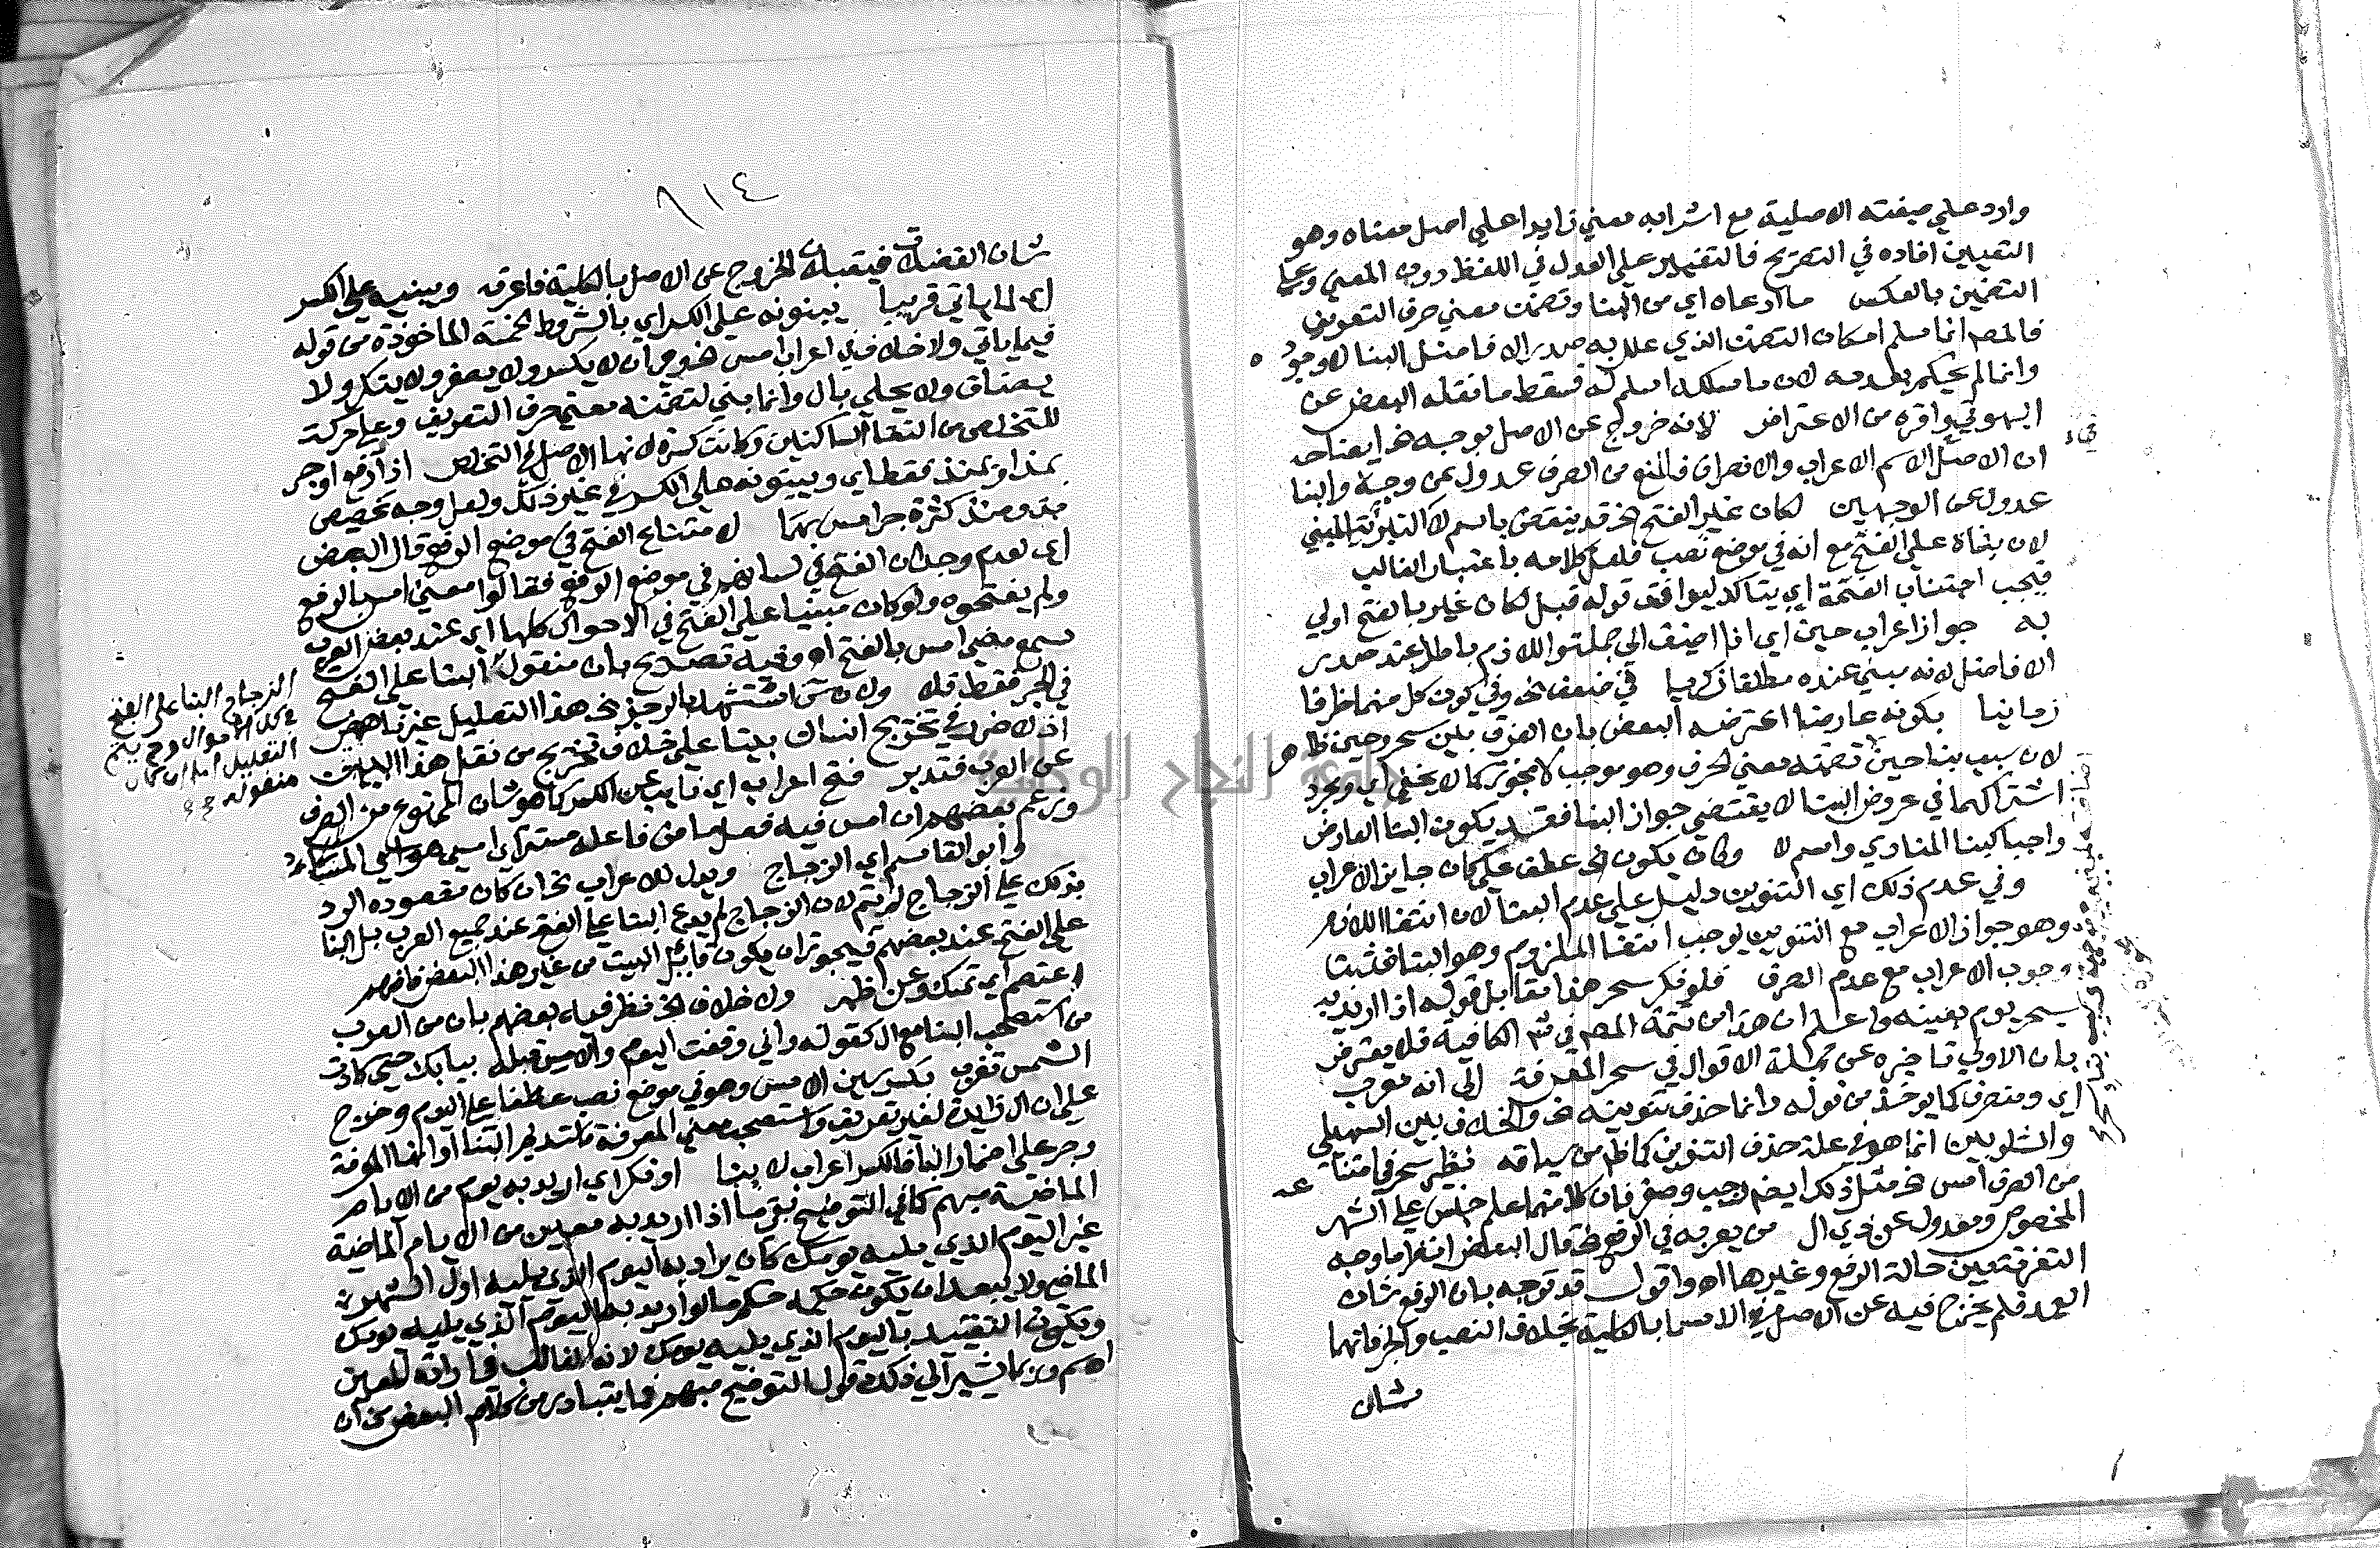 وارد علي صيغته الاصلية مع اشرابه معني زايدا علي اصل معناه وهو
التعيين افاده في التصريح فالتغيير علي العدل في اللفظ دون المعني وعلي
التضمين بالعكس ما ادعاه اي من البنا وتضمن معني حرف التعريف
فالمصم انما سلم امكان التضمن الذي علل به صدر الافاضل البنا لا وجوده
وانما لم يحكم بعدمه لان ما سلكه اسلم له فسقط ما نقله البعض عن
البهوتي واقره من الاعتراض لانه خروج عن الاصل بوجه هذا يضاحه
ان الاصل في الاسم الاعراب والانصراف فالمنع من الصرف عدول عن وجه والبنا
عدول عن الوجهين لكان غير الفتح الخ قد ينقض باسم لا التبرئة المبني
لان بناه علي الفتح مع انه في موضع نصب فلعل كلامه باعتبار الغالب
فيجب اجتناب الفتحة اي يتاكد ليوافق قوله قبل لكان غير بالفتح اولي
به جواز اعراب حين اي اذا اضيف الي جملة واللازم باطل عند صدر
الافاضل لانه مبني عنده مطلقا زكريا في ضعف الخ وفي كون كل منهما ظرفا
زمانيا بكونه عارضا اعترضه البعض بان الفرق بين سحر وحين ظاهر
لان سبب بنا حين تضمنه معني الحرف وهو موجب لا مجوز كما لا يخفي اي ومجرد
اشتراكهما في عروض البنا لا يقتضي جواز البنا فقد يكون البنا العارض
واجبا كبنا المنادي واسم لا وكان يكون الخ عطف علي كان جايز الاعراب
وفي عدم ذلك اي التنوين دليل علي عدم البنا لان انتفا اللازم
وهو جواز الاعراب مع التنوين يوجب انتفا الملزوم وهو البنا فثبتا
وجوب الاعراب مع عدم الصرف فلو نكر سحر هذا مقابل قوله اذا اريد به
سحر يوم بعينه واعلم ان هذا من تتمة المصم في شرح الكافية فلا يعترض
بان الاولي تاخيره عن جملة الاقوال في سحر المعرفة الي انه معرب
اي ومنصرف كما يوخذ من قوله وانما حذف تنوينه الخ والخلاف بين السهيلي
والشلوبين انما هو في علة حذف التنوين كما ظهر من سياقه نظير سحر في امتناعه
من الصرف امس الخ مثل ذلك ايضا رجب وصفر فان كلا منهما علم جنس علي الشهر
المخصوص ومعدول عن ذي ال من يعربه في الرفع الخ قال البعض انظر ما وجه
التفرقة بين حالة الرفع وغيرها اه واقول قد توجه بان الرفع شان
العمد فلم يخرج فيه عن الاصل في الاسما بالكلية بخلاف النصب والجر فانهما
شان
٩١٤
شان الفضلات فيتقبلان الخروج عن الاصل بالكلية فاعرفه ويبنيه علي الكسر
اي لما ياتي قريبا يبنونه علي الكسر اي بالشروط الخمسة الماخوذة من قوله
فيما ياتي ولا خلاف في اعراب امس الخ وهي ان لا يكسر ولا يصغر ولا ينكر ولا
يضاف ولا يحلي بال وانما بني لتضمنه معني حرف التعريف وعلي حركة
للتخلص من التقا الساكنين وكانت كسرة لانها الاصل في التخلص اذا رفع او جر
بمذ او بمنذ فقط اي ويبنونه علي الكسر في غير ذلك ولعل وجه تخصيص
مذ ومنذ كثرة جر امس بهما لامتناع الفتح في موضع الرفع قال البعض
اي لعدم وجدان الفتح في لسانهم في موضع الرفع فقالوا مضي امس بالرفع
ولم يفتحوه ولو كان مبنيا علي الفتح في الاحوال كلها اي عند بعض العرب
لسمع مضي امس بالفتح اه وفيه تصريح بان منقول البنا علي الفتح
في الجر فقط قلا ولان س استشهد بالرجز الخ هذا التعليل غير ناهض
اذ لا ضرر في تخريج انسان بيتا علي خلاف تخريج من نقل هذا البيت
عن العرب فتدبر فتح اعراب اي نايب عن الكسر كما هو شان الممنوع من الصرف
وزعم بعضهم ان امس فيه فعل ماض فاعله مستتر اي امسي هو اي المساء
وابو القاسم اي الزجاج ويدل للاعراب الخ ان كان مقصوده الرد
بذلك علي الزجاج لم يتم لان الزجاج لم يدع البنا علي الفتح عند جميع العرب بل البنا
علي الفتح عند بعضهم فيجوز ان يكون قائل البيت من غير هذا البعض فافهم
اعتصم اي تمسك وعن اظهر ولا خلاف الخ نظر فيه بعضهم بان من العرب
من استصحب البنا مع ال كقوله واني وقفت اليوم والامس قبله ببابك حتي كادت
الشمس تغرب بكسر سين الامس وهو في موضع نصب عطفا علي اليوم وخرج
علي ان ال زايدة لغير تعريف واستصحب معني المعرفة فاستديم البنا او انها المعرفة
وجر علي اضمار البا فالكسر اعراب لا بنا او نكر اي اريد به يوم من الايام
الماضية مبهم كما في التوضيح بقي ما اذا اريد به معين من الايام الماضية
غير اليوم الذي يليه يومك كان يراد به اليوم الذي يليه اول الشهر
الماضي ولا يبعد ان يكون حكمه حكم ما لو اريد به اليوم الذي يليه يومك
ويكون التقييد باليوم الذي يليه يومك لانه الغالب في ارادة المعين
اه سم وربما يشير الي ذلك قول التوضيح مبهم فما يتبادر من كلام البعض من ان
الزجاج البنا علي الفتح
في كل الاحوال وح يتجه
التعليل اما ان كان
منقوله